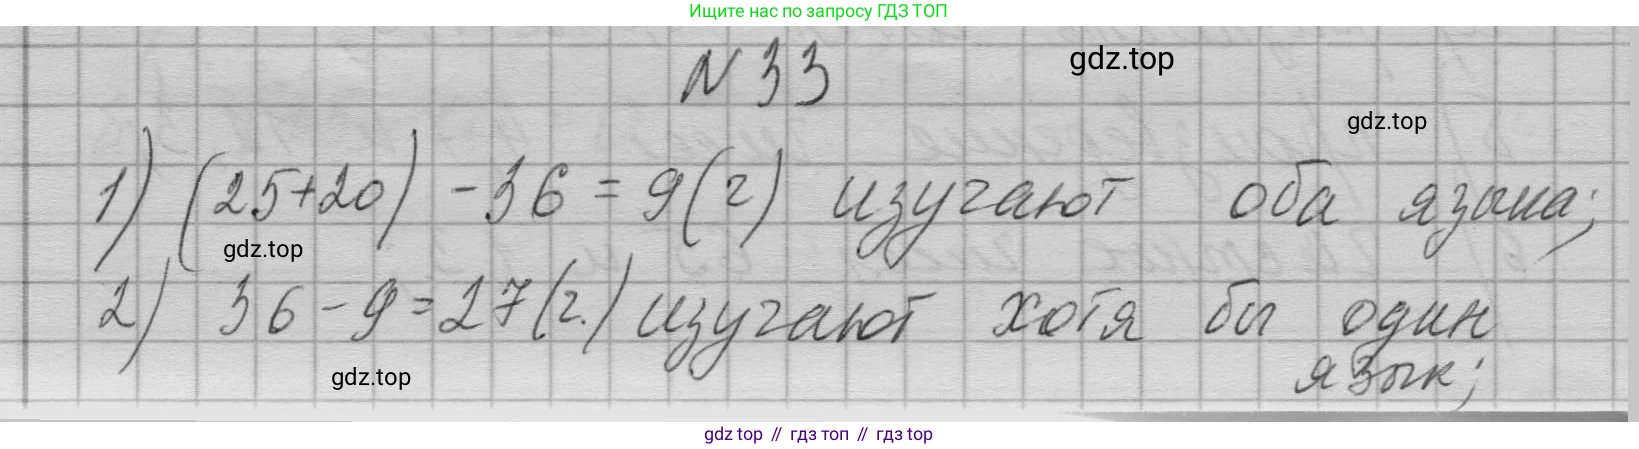 Ищите нас по запросу ГДЗ ТОП
N 33
gdz.top
gdz.top
1) (25+20) - 36 = 9(г) изучают оба языка;
gdz.top
2) 36 - 9 = 27(г.) изучают хотя бы один
язык;
gdz.top
gdz top // гдз топ // гдз top